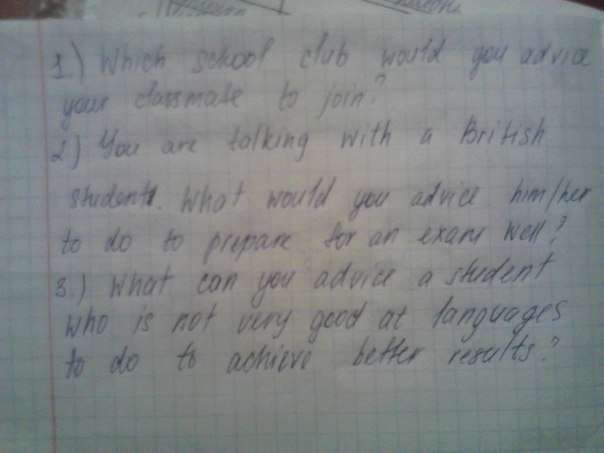 1) Which school club would you advice
your classmate to join?
2) You are talking with a British
student. What would you advice him/her
to do to prepare for an exam well?
3.) What can you advice a student
who is not very good at languages
to do to achieve better results?